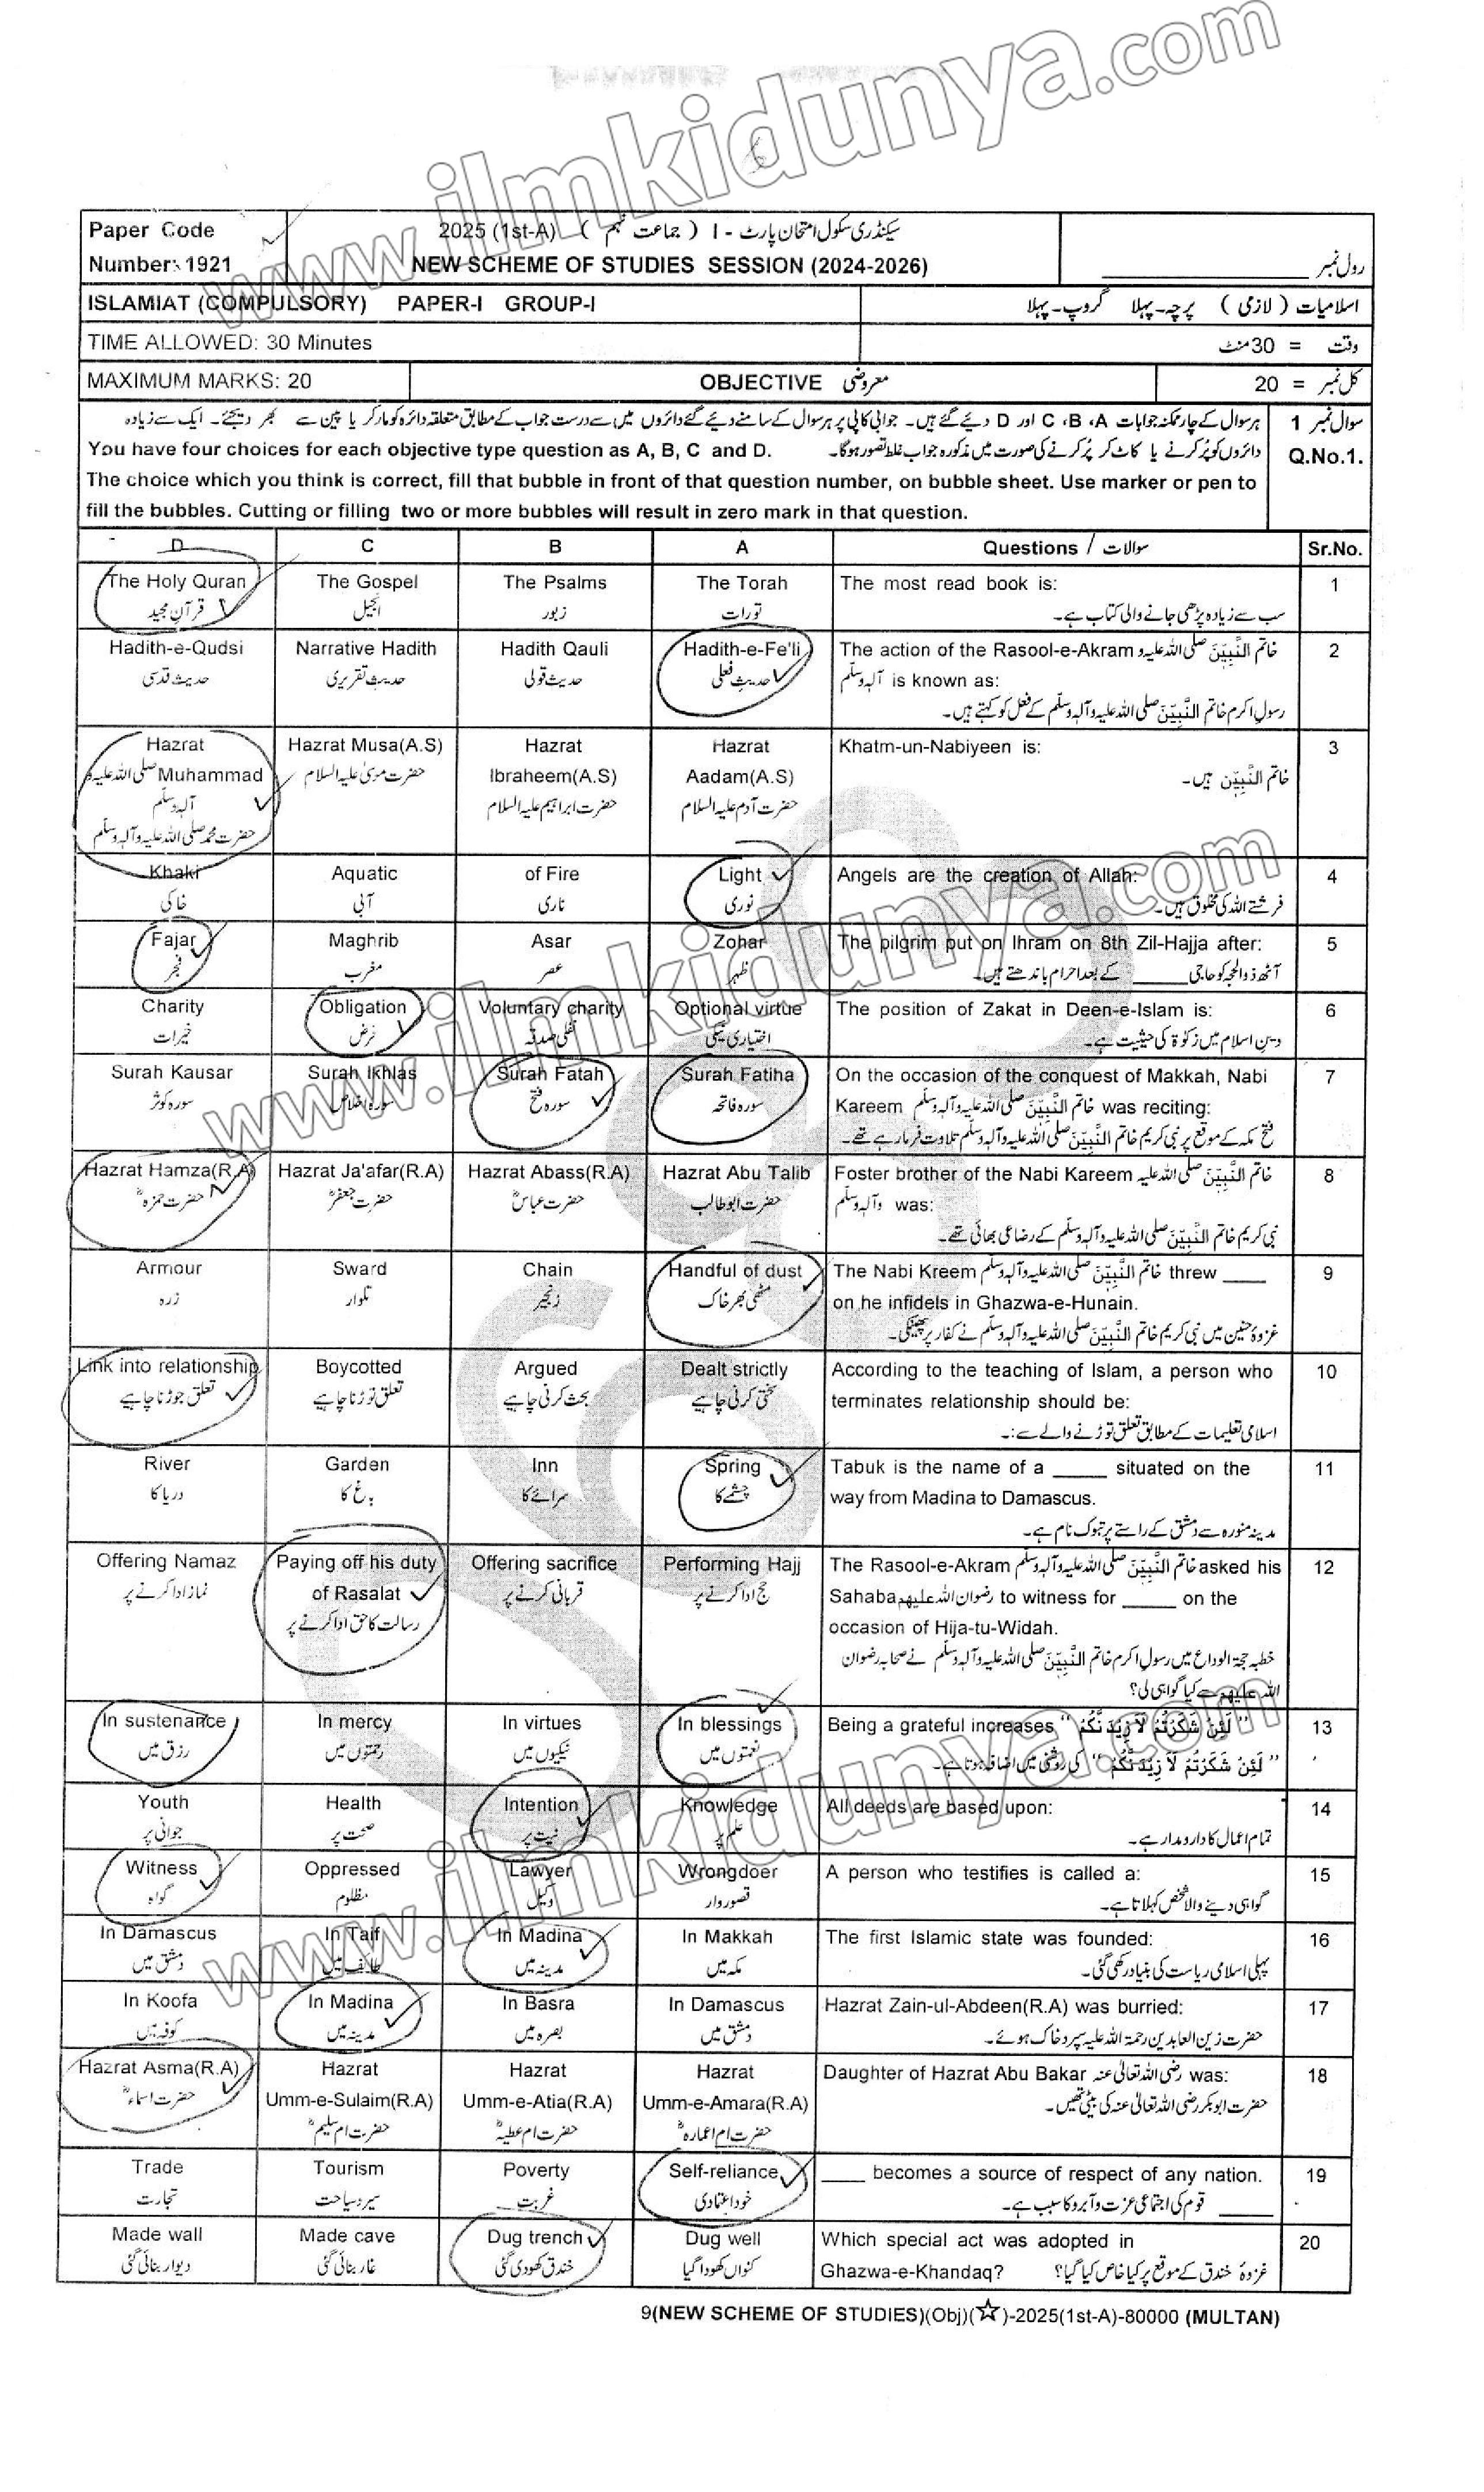 www.ilmkidunya.com
Paper Code
Number: 1921
2025 (1st-A) سیکنڈری سکول امتحان پارٹ - I ( جماعت نہم )
NEW SCHEME OF STUDIES SESSION (2024-2026)
رول نمبر ____________
ISLAMIAT (COMPULSORY) PAPER-I GROUP-I
اسلامیات ( لازمی ) پرچہ۔ پہلا گروپ۔ پہلا
TIME ALLOWED: 30 Minutes
وقت = 30 منٹ
MAXIMUM MARKS: 20
OBJECTIVE معروضی
کل نمبر = 20
سوال نمبر 1 ہر سوال کے چار ممکنہ جوابات A، B، C اور D دیئے گئے ہیں۔ جوابی کاپی پر ہر سوال کے سامنے دیئے گئے دائروں میں سے درست جواب کے مطابق متعلقہ دائرہ کو مارکر یا پین سے بھر دیجئے۔ ایک سے زیادہ
دائروں کو پُر کرنے یا کاٹ کر پُر کرنے کی صورت میں مذکورہ جواب غلط تصور ہوگا۔
Q.No.1. You have four choices for each objective type question as A, B, C and D.
The choice which you think is correct, fill that bubble in front of that question number, on bubble sheet. Use marker or pen to
fill the bubbles. Cutting or filling two or more bubbles will result in zero mark in that question.
D C B A Questions / سوالات Sr.No.
The Holy Quran The Gospel The Psalms The Torah The most read book is: 1
قرآن مجید انجیل زبور تورات سب سے زیادہ پڑھی جانے والی کتاب ہے۔
Hadith-e-Qudsi Narrative Hadith Hadith Qauli Hadith-e-Fe'li The action of the Rasool-e-Akram خاتم النَّبِیّٖنَ صلی اللہ علیہ و 2
حدیث قدسی حدیث تقریری حدیث قولی حدیث فعلی آلہٖ وسلّم is known as:
رسول اکرم خاتم النَّبِیّٖنَ صلی اللہ علیہ وآلہٖ وسلّم کے فعل کو کہتے ہیں۔
Hazrat Hazrat Musa(A.S) Hazrat Hazrat Khatm-un-Nabiyeen is: 3
Muhammad صلی اللہ علیہ و حضرت موسیٰ علیہ السلام Ibraheem(A.S) Aadam(A.S) خاتم النَّبِیّٖن ہیں۔
آلہٖ وسلّم حضرت ابراہیم علیہ السلام حضرت آدم علیہ السلام
حضرت محمد صلی اللہ علیہ وآلہٖ وسلّم
Khaki Aquatic of Fire Light Angels are the creation of Allah: 4
خاکی آبی ناری نوری فرشتے اللہ کی مخلوق ہیں۔
Fajar Maghrib Asar Zohar The pilgrim put on Ihram on 8th Zil-Hajja after: 5
فجر مغرب عصر ظہر آٹھ ذوالحجہ کو حاجی _____ کے بعد احرام باندھتے ہیں۔
Charity Obligation Voluntary charity Optional virtue The position of Zakat in Deen-e-Islam is: 6
خیرات فرض نفلی صدقہ اختیاری نیکی دین اسلام میں زکوٰۃ کی حیثیت ہے۔
Surah Kausar Surah Ikhlas Surah Fatah Surah Fatiha On the occasion of the conquest of Makkah, Nabi 7
سورہ کوثر سورہ اخلاص سورہ فتح سورہ فاتحہ Kareem خاتم النَّبِیّٖنَ صلی اللہ علیہ وآلہٖ وسلّم was reciting:
فتح مکہ کے موقع پر نبی کریم خاتم النَّبِیّٖنَ صلی اللہ علیہ وآلہٖ وسلّم تلاوت فرما رہے تھے۔
Hazrat Hamza(R.A) Hazrat Ja'afar(R.A) Hazrat Abass(R.A) Hazrat Abu Talib Foster brother of the Nabi Kareem خاتم النَّبِیّٖنَ صلی اللہ علیہ 8
حضرت حمزہؓ حضرت جعفرؓ حضرت عباسؓ حضرت ابو طالب وآلہٖ وسلّم was:
نبی کریم خاتم النَّبِیّٖنَ صلی اللہ علیہ وآلہٖ وسلّم کے رضاعی بھائی تھے۔
Armour Sward Chain Handful of dust The Nabi Kreem خاتم النَّبِیّٖنَ صلی اللہ علیہ وآلہٖ وسلّم threw ____ 9
زرہ تلوار زنجیر مٹھی بھر خاک on he infidels in Ghazwa-e-Hunain.
غزوۂ حنین میں نبی کریم خاتم النَّبِیّٖنَ صلی اللہ علیہ وآلہٖ وسلّم نے کفار پر پھینکی۔
Link into relationship Boycotted Argued Dealt strictly According to the teaching of Islam, a person who 10
تعلق جوڑنا چاہیے تعلق توڑنا چاہیے بحث کرنی چاہیے سختی کرنی چاہیے terminates relationship should be:
اسلامی تعلیمات کے مطابق تعلق توڑنے والے سے:۔
River Garden Inn Spring Tabuk is the name of a _____ situated on the 11
دریا کا باغ کا سرائے کا چشمے کا way from Madina to Damascus.
مدینہ منورہ سے دمشق کے راستے پر تبوک نام ہے۔
Offering Namaz Paying off his duty Offering sacrifice Performing Hajj The Rasool-e-Akram خاتم النَّبِیّٖنَ صلی اللہ علیہ وآلہٖ وسلّم asked his 12
نماز ادا کرنے پر of Rasalat قربانی کرنے پر حج ادا کرنے پر Sahaba رضوان اللہ علیہم to witness for _____ on the
رسالت کا حق ادا کرنے پر occasion of Hija-tu-Widah.
خطبہ حجۃ الوداع میں رسول اکرم خاتم النَّبِیّٖنَ صلی اللہ علیہ وآلہٖ وسلّم نے صحابہ رضوان
اللہ علیہم سے کیا گواہی لی؟
In sustenance In mercy In virtues In blessings Being a grateful increases "لَئِنْ شَكَرْتُمْ لَاَزِيْدَنَّكُمْ" 13
رزق میں رحمتوں میں نیکیوں میں نعمتوں میں "لَئِنْ شَكَرْتُمْ لَاَزِيْدَنَّكُمْ" کی روشنی میں اضافہ ہوتا ہے۔
Youth Health Intention Knowledge All deeds are based upon: 14
جوانی پر صحت پر نیت پر علم پر تمام اعمال کا دارومدار ہے۔
Witness Oppressed Lawyer Wrongdoer A person who testifies is called a: 15
گواہ مظلوم وکیل قصوروار گواہی دینے والا شخص کہلاتا ہے۔
In Damascus In Taif In Madina In Makkah The first Islamic state was founded: 16
دمشق میں طائف میں مدینہ میں مکہ میں پہلی اسلامی ریاست کی بنیاد رکھی گئی۔
In Koofa In Madina In Basra In Damascus Hazrat Zain-ul-Abdeen(R.A) was burried: 17
کوفہ میں مدینہ میں بصرہ میں دمشق میں حضرت زین العابدین رحمۃ اللہ علیہ سپرد خاک ہوئے۔
Hazrat Asma(R.A) Hazrat Hazrat Hazrat Daughter of Hazrat Abu Bakar رضی اللہ تعالیٰ عنہ was: 18
حضرت اسماءؓ Umm-e-Sulaim(R.A) Umm-e-Atia(R.A) Umm-e-Amara(R.A) حضرت ابوبکر رضی اللہ تعالیٰ عنہ کی بیٹی تھیں۔
حضرت ام سلیمؓ حضرت ام عطیہؓ حضرت ام اعمارہؓ
Trade Tourism Poverty Self-reliance ____ becomes a source of respect of any nation. 19
تجارت سیر و سیاحت غربت خود اعتمادی _____ قوم کی اجتماعی عزت و آبرو کا سبب ہے۔
Made wall Made cave Dug trench Dug well Which special act was adopted in 20
دیوار بنائی گئی غار بنائی گئی خندق کھودی گئی کنواں کھودا گیا Ghazwa-e-Khandaq? غزوۂ خندق کے موقع پر کیا خاص کیا گیا؟
9(NEW SCHEME OF STUDIES)(Obj)(☆)-2025(1st-A)-80000 (MULTAN)
www.ilmkidunya.com
www.ilmkidunya.com